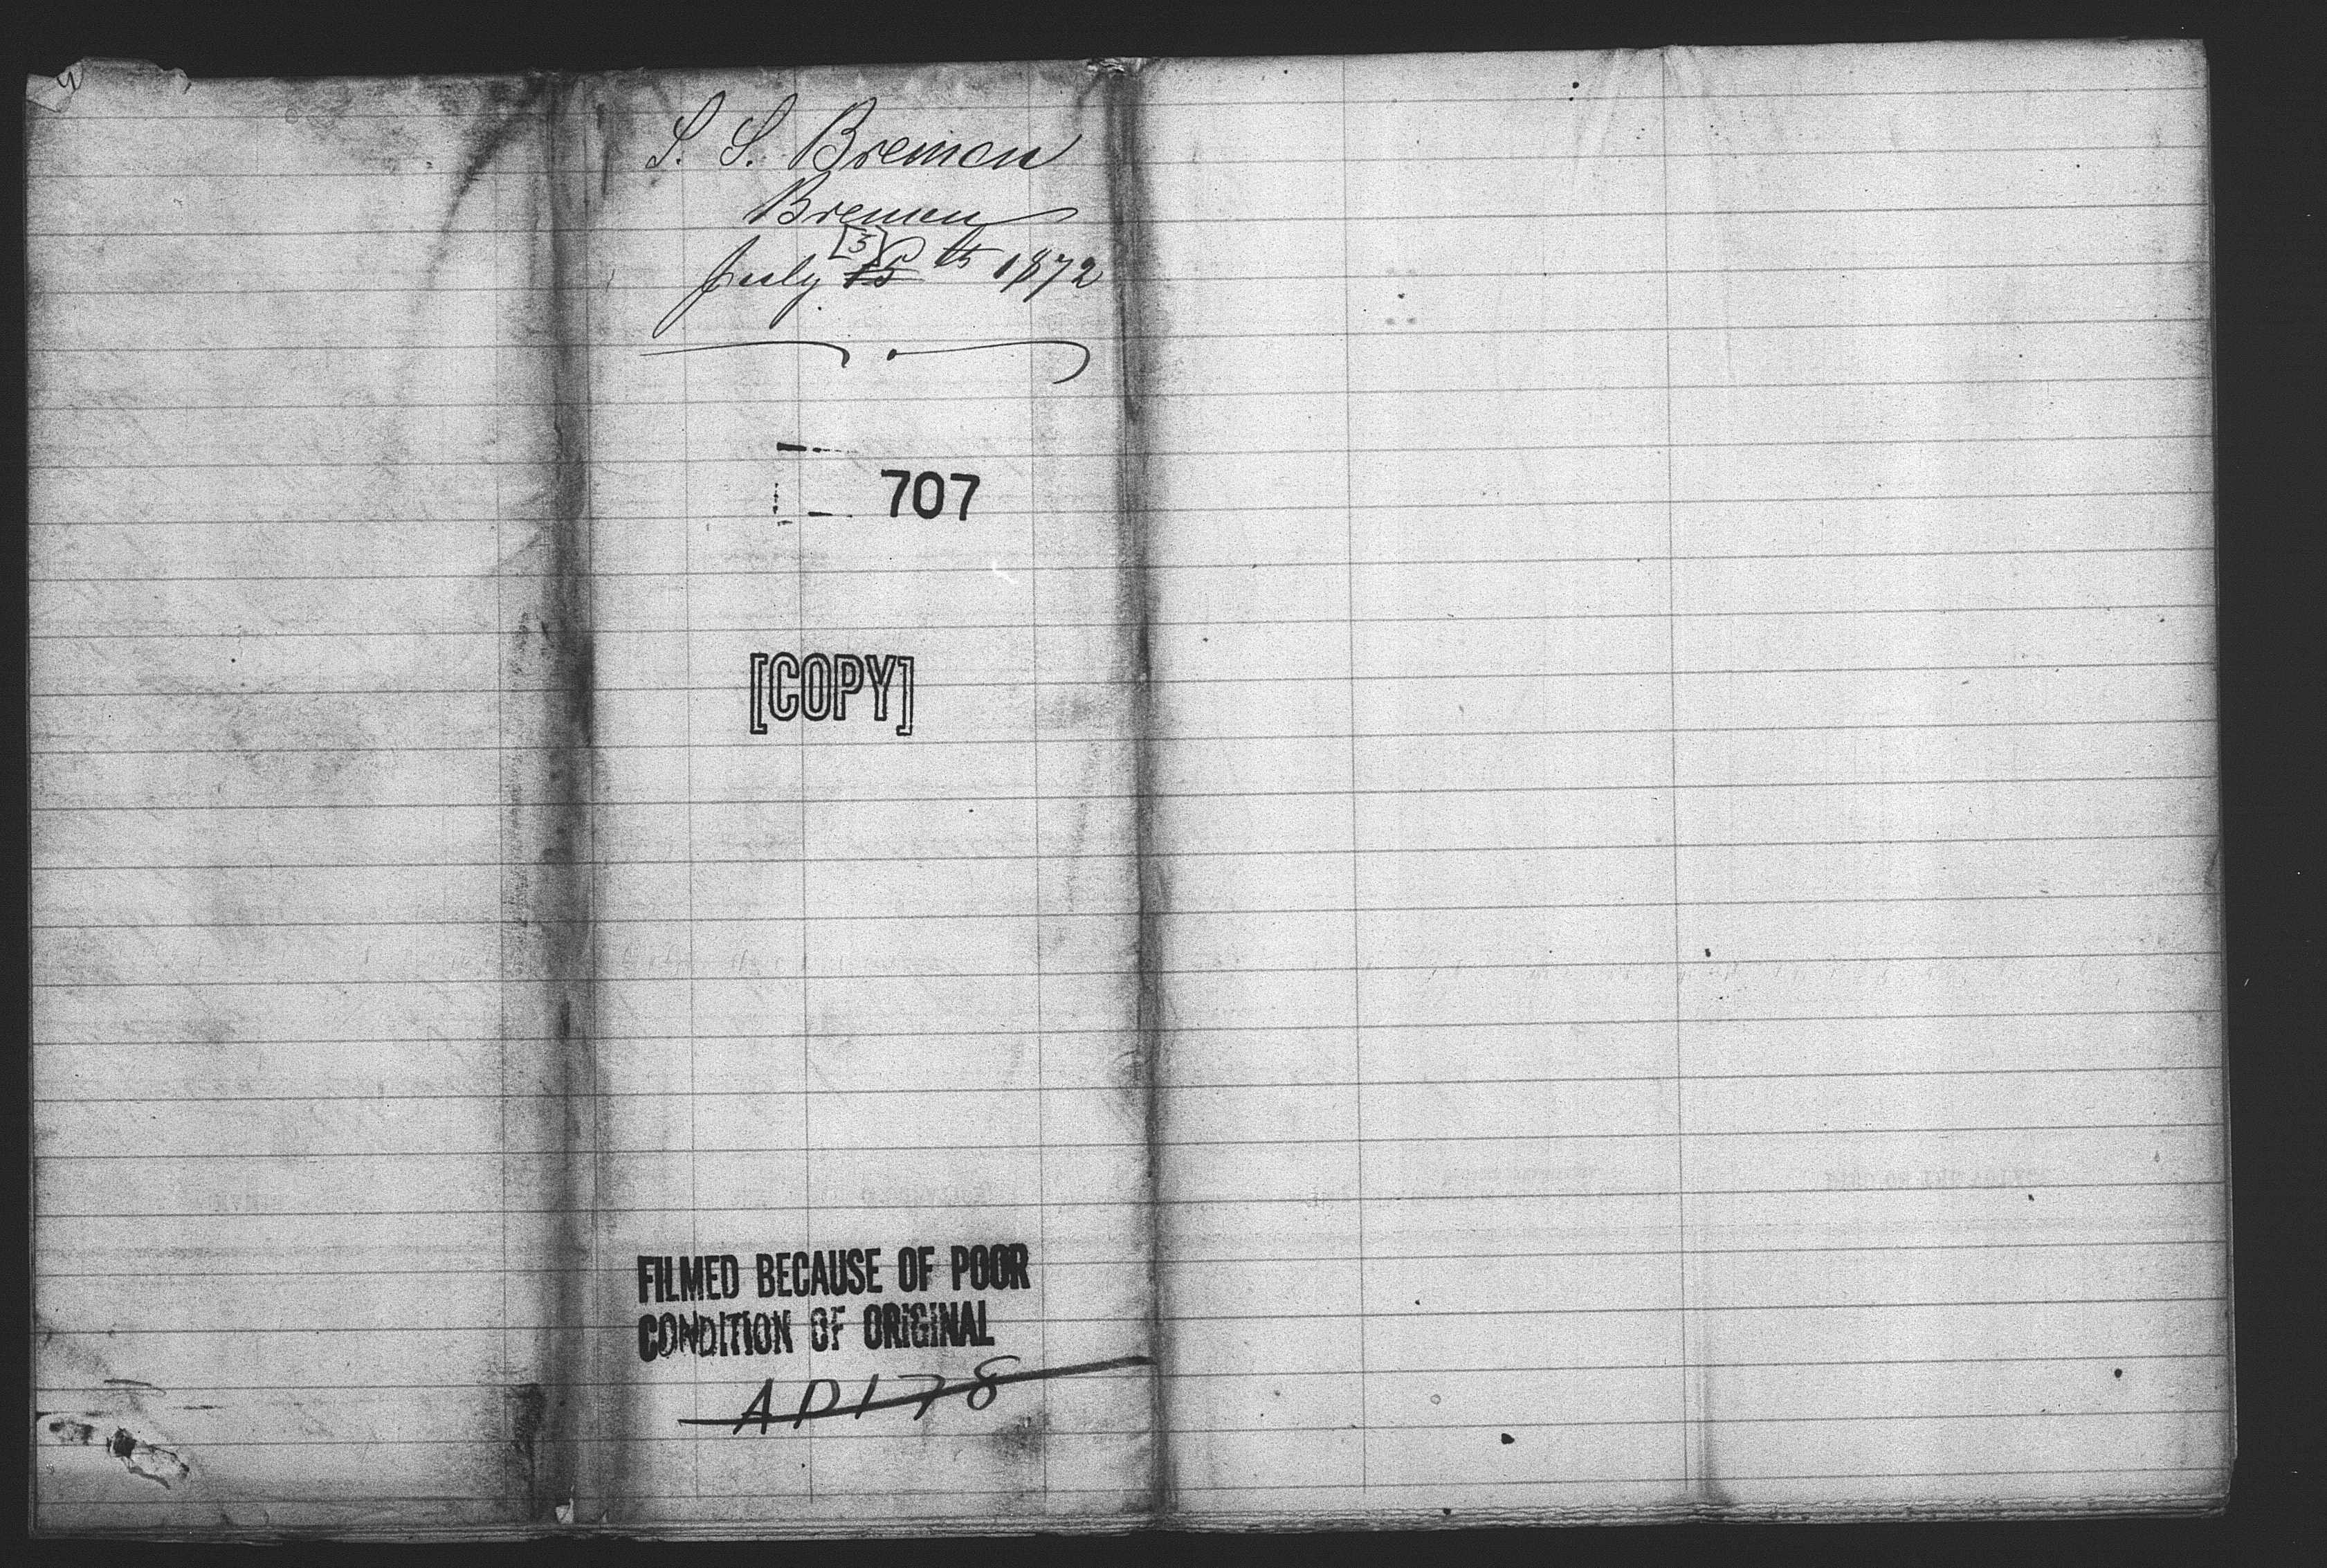 S. S. Bremen
Bremen
[3]
July 15 th 1872
707
[COPY]
FILMED BECAUSE OF POOR
CONDITION OF ORIGINAL
AP178